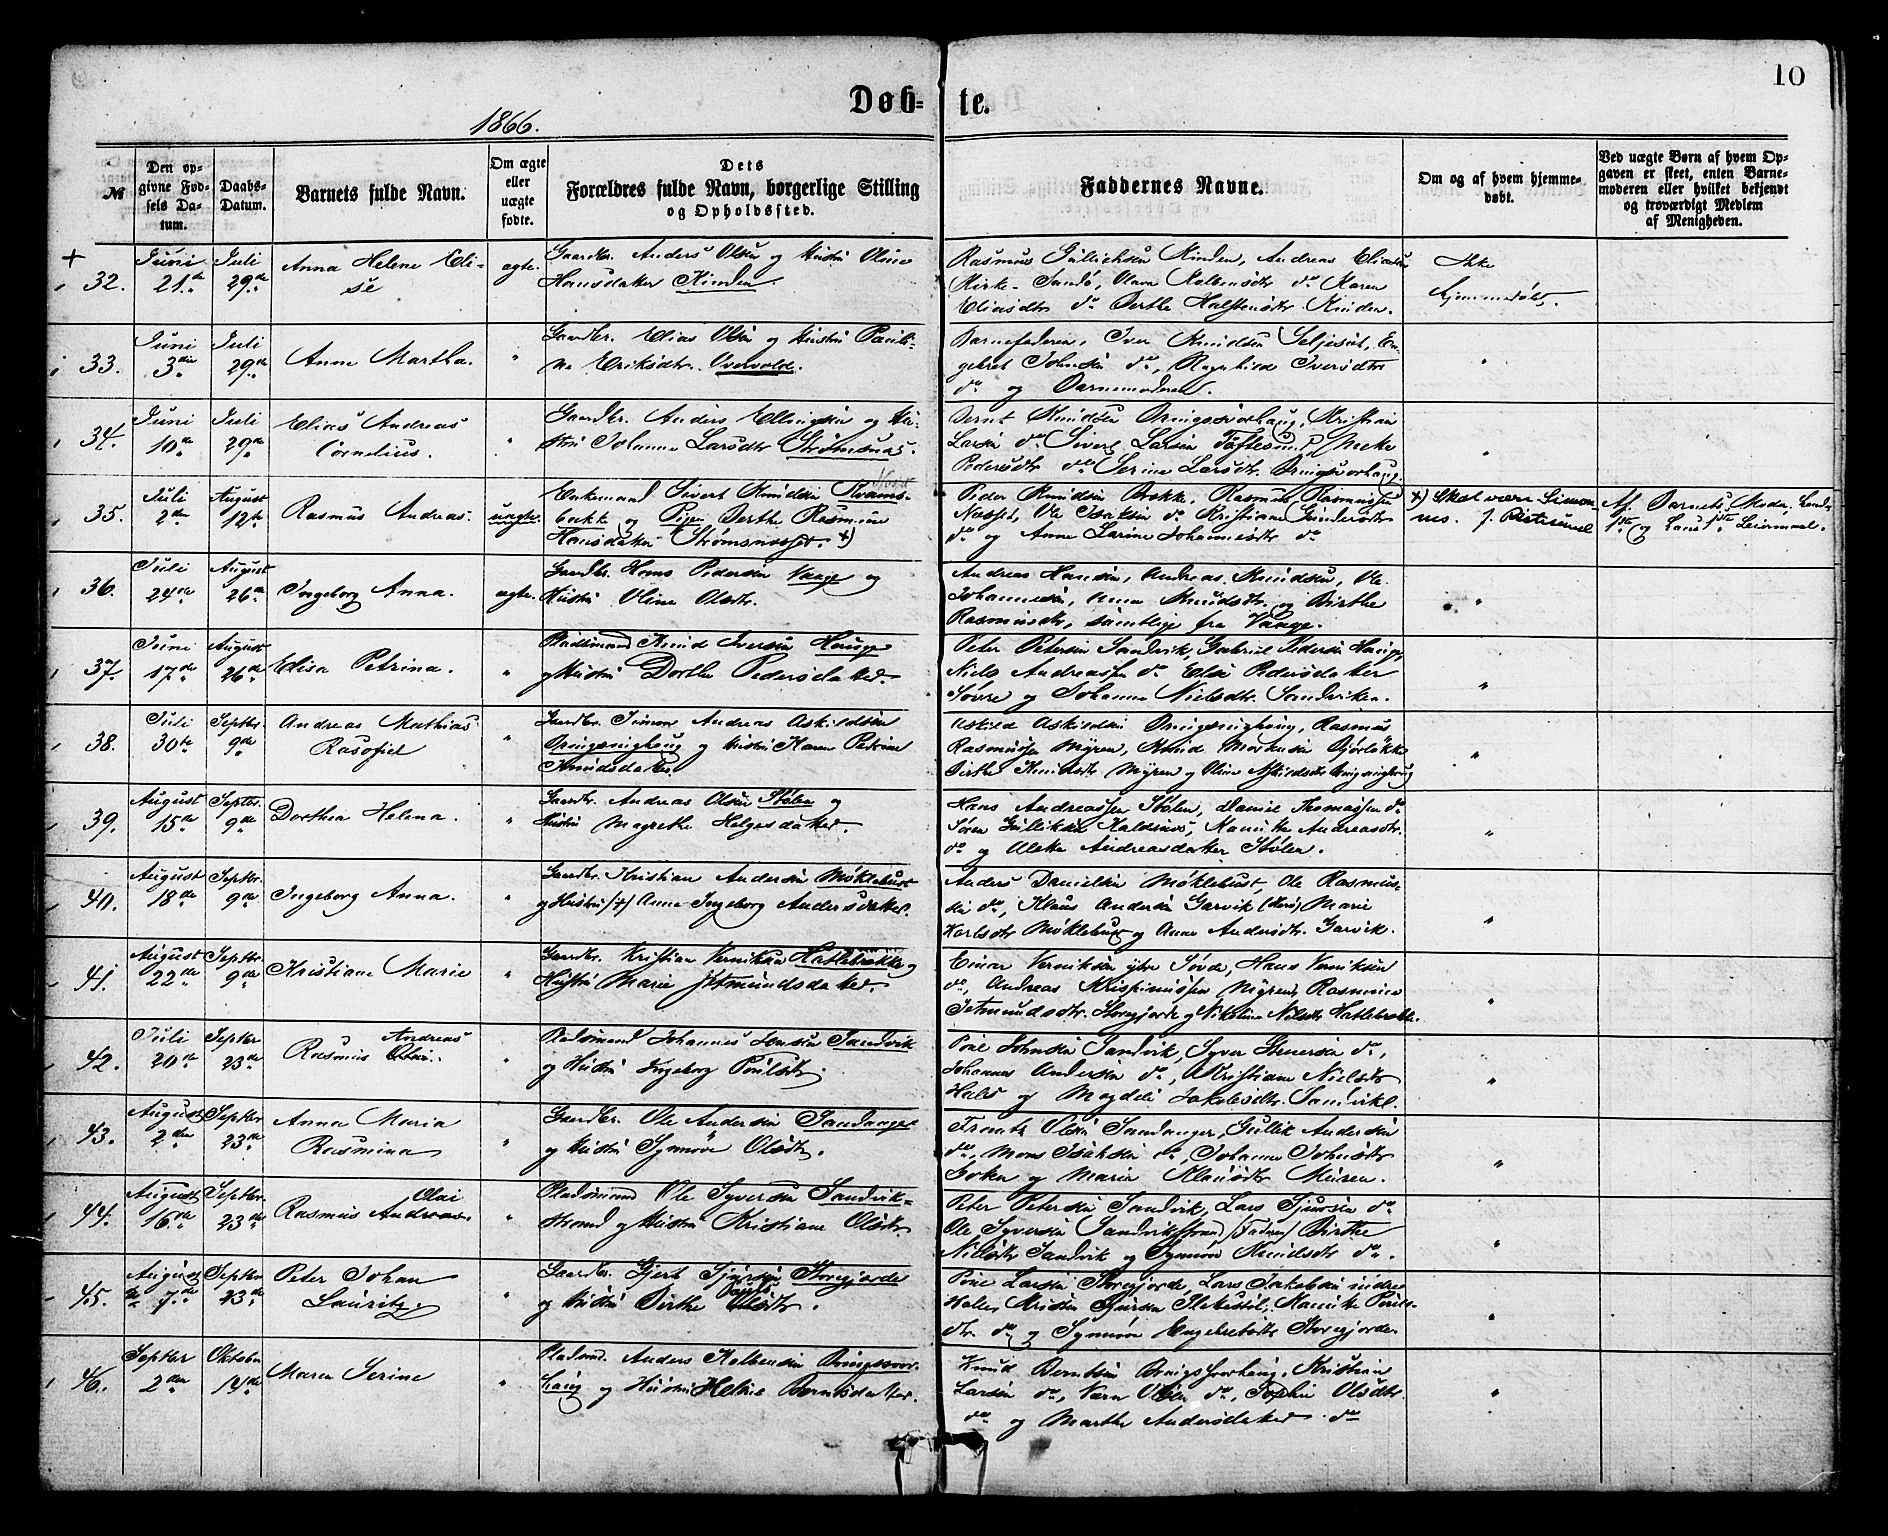 10
Døb- te.
1866.
№
Den opgivne Fødsels Datum.
Daabs-Datum.
Barnets fulde Navn.
Om ægte eller uægte fødte.
Dets Forældres fulde Navn, borgerlige Stilling og Opholdssted.
Faddernes Navne.
Om og af hvem hjemmedøbt.
Ved uægte Børn af hvem Opgaven er skeet, enten Barnemoderen eller hvilket bekjendt og troværdigt Medlem af Menigheden.
+ 32. Juni 21de Juli 29de Anna Helene Eli-
se
ægte. Gaardbr. Anders Olsen og Hustru Oline
Hansdatter Kinden.
Rasmus Gullichsen Kinden, Andreas Eliassen
Kirke-Sandø, Olave Kolbensdtr do Karen
Eliasdtr do Berthe Halstensdtr Kinden.
Ikke
hjemmedøbt.
33. Juni 3die Juli 29de Anne Martha. " Gaardbr. Elias Olsen og Hustru Pauli-
ne Eriksdtr. Overvolde.
Barnefaderen, Iver Knudsen Seljeset, En-
gebret Johnsen do, Ragnhild Iversdtr
do og Barnemoderen.
"
34. Juni 10de Juli 29de Elias Andreas
Cornelius.
" Gaardbr. Anders Ellingsen og Hu-
stru Johanne Larsdtr Strømsnes.
Bernt Knudsen Bringsvorhaug, Kristian
Larsen do Sivert Larsen Toftesund,
Pedersdtr do Serine Larsdtr. Bringsvorhaug.
"
35. Juli 2den August 12te Rasmus Andreas. uægte. Enkemand Sivert Knudsen Kvams-
bakk og Pige Berthe Rasmine
Hansdatter Strømsnesset. +)
Peder Knudsen Brekke, Rasmus Rasmussen
Næsset, Ole Isaksen do Kristiane Gundersdtr
do og Anne Larine Johannesdtr do
+) Skal være Simon-
nes. J.
Af Barnets Moder.
1ste og Hans 1ste Leiermaal.
36. Juli 24de August 26de Ingeborg Anna. ægte. Gaardbr. Hans Pedersen Vaage og
Hustru Oline Olsdtr.
Andreas Hansen, Andreas Knudsen, Ole
Johannesen, Anne Knudsdtr. og Birthe
Rasmusdtr, samtlige fra Vaage.
"
37. Juni 17de August 26de Elisa Petrina. " Pladsmand Knud Iversen Hauge
og Hustru Dorthe Pedersdatter.
Peter Petersen Sandvik, Gabriel Pedersen Hauge,
Niels Andreassen do Else Pedersdatter
Søvre og Johanne Nielsdtr. Sandviken.
"
38. Juli 30te Septbr. 9de Andreas Mathias
Rasofiel
" Gaardbr. Simon Andreas Askildsen
Bringsinghaug og Hustru Karen Petrine
Knudsdatter
Askild Askildsen Bringsinghaug, Rasmus
Rasmussen Myren, Knud Markusen Bjørløkke
Birthe Knudsdtr Myren og Oline Askildsdtr Bringsinghaug
"
39. August 15de Septbr. 9de Dorthea Helena. " Gaardbr. Andreas Olsen Stølen og
Hustru Magrethe Helgesdatter.
Hans Andreassen Stølen, Daniel Thomassen do
Søren Gulliksen Haldsnes, Marithe Andreasdtr.
do og Alette Andreasdatter Stølen.
"
40. August 18de Septbr. 9de Ingeborg Anna. " Gaardbr. Kristian Andersen Møklebust
og Hustru (+) Anne Ingeborg Andersdatter.
Anders Danielsen Møklebust, Ole Rasmus-
sen do, Klaus Andersen Garvik (Herø) Marie
Karlsdtr Møklebust og Anne Andersdtr. Garvik.
"
41. August 22de Septbr. 9de Kristiane Marie " Gaardbr. Kristian Verniksen Hatlebrække og
Hustru Marie Jetmundsdatter.
Einar Verniksen ytre Søvde, Hans Verniksen
do, Andreas Rasmussen Myren, Rasmine
Jetmundsdtr. Storegjorde og Nikoline Nielsdtr Hatlebrække.
"
42. Juli 20de Septbr 23de Rasmus Andreas
Olai.
" Pladsmand Johannes Jensen Sandvik
og Hustru Ingeborg Poulsdtr.
Poul Johnsen Sandvik, Syver Steversen do,
Johannes Andersen do, Kristiane Nielsdtr
Hals og Magdeli Jakobsdtr. Sandvikl.
"
43. August 2den Septbr. 23de Anna Maria
Rasmina
" Gaardbr. Ole Andersen Sandanger
og Hustru Synnøve Olsdtr.
Frants Olsen Sandanger, Gullik Andersen
do, Mons Isaksen do, Johanne Johnsdtr
Goken og Marie Klausdtr. Muren.
"
44. August 16de Septbr. 23de Rasmus Andreas. Olai
" Pladsmand Ole Syversen Sandvik-
strand og Hustru Kristiane Olsdtr.
Peter Petersen Sandvik, Lars Sjursen do
Ole Syversen Sandvikstrand (Faderen) Birthe
Nielsdtr Sandvik og Synnøve Knudsdtr do.
"
45. August 7de Septbr 23de Peter Johan
Lauritz.
" Gaardbr. Gjert Sjursen Storegjorde
og Hustru Birthe Olsdtr.
Poul Larsen Storegjorde, Lars Jakobsen indre
Halle, Kristen Sjursen Flekkestøl, Marithe Pouls-
dtr. do og Synnøve Engebretsdtr Storegjorde
"
46. Septbr 2den Oktober 14de Maren Serine " Pladsmd. Anders Kolbensen Bringsvor-
haug og Hustru Helene Berntsdatter.
Knud Berntsen Bringsvorhaug, Kristian
Larsen do, Olsen do, Sophie Olsdtr.
do og Marthe Andersdatter do
"